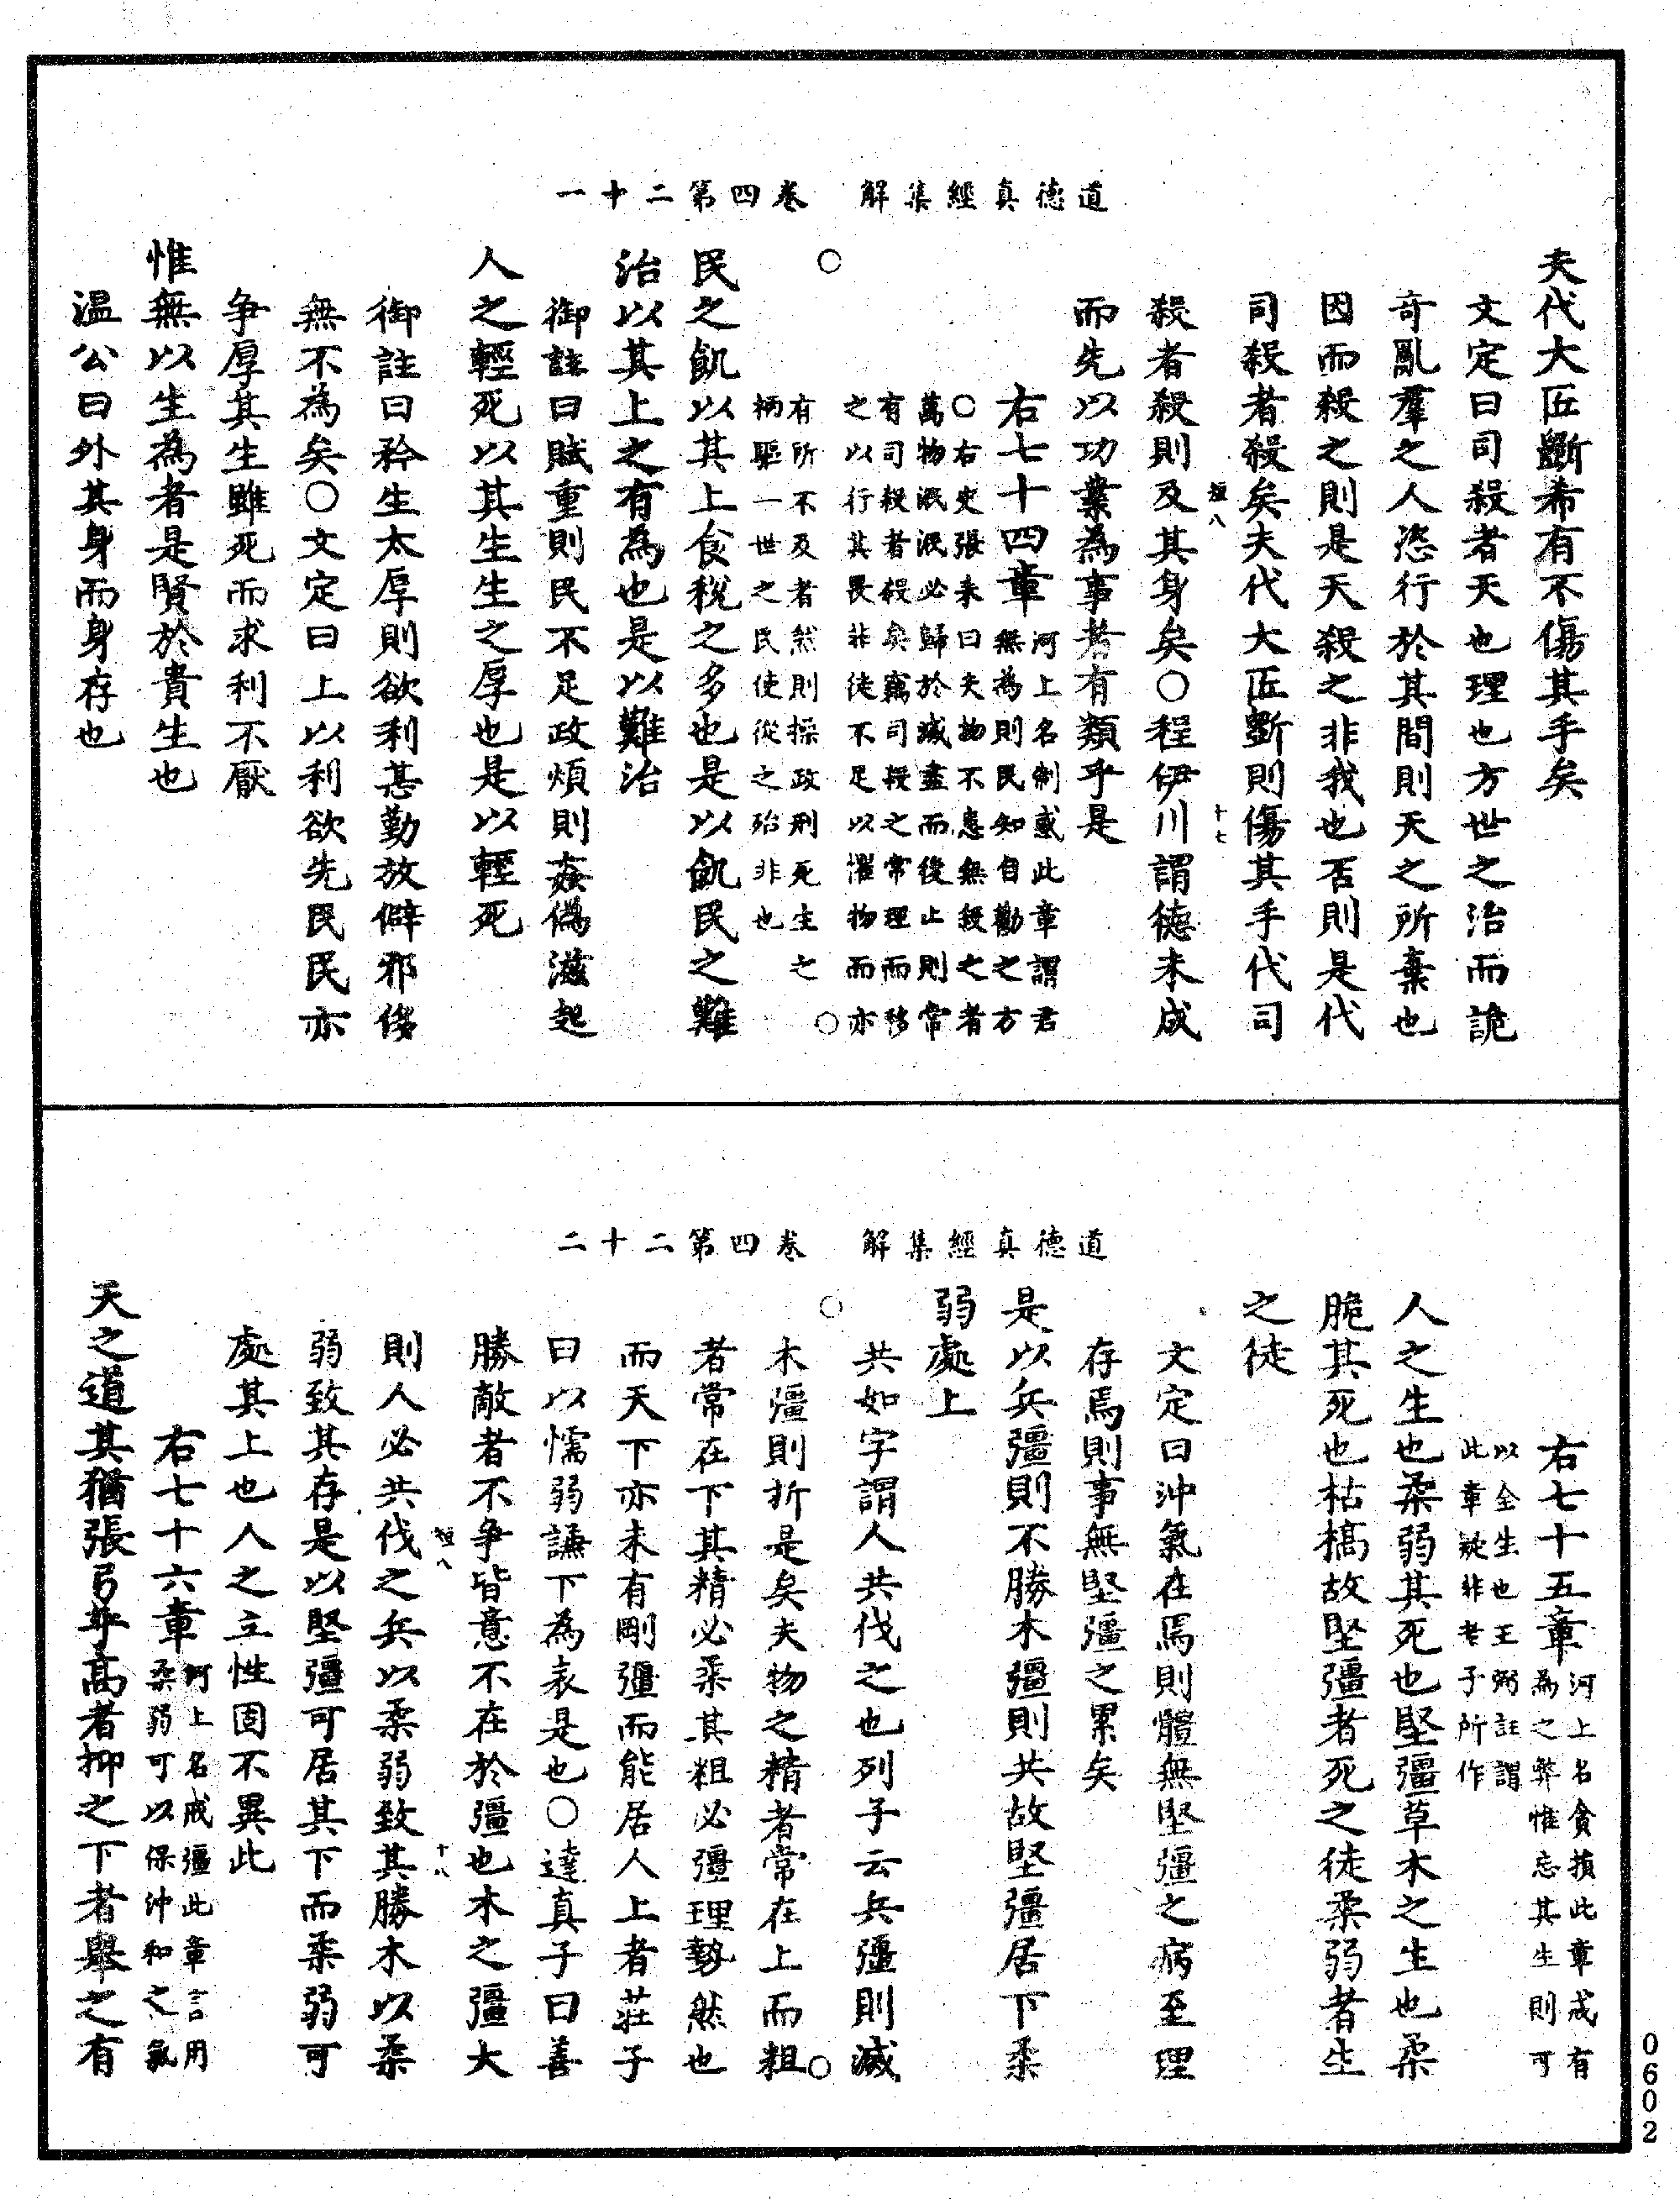 道德真經集解　卷四第二十一
夫代大匠斲希有不傷其手矣
文定曰司殺者天也理也方世之治而詭
奇亂羣之人恣行於其間則天之所棄也
因而殺之則是天殺之非我也否則是代
司殺者殺矣夫代大匠斲則傷其手代司
短八　十七
殺者殺則及其身矣○程伊川謂德未成
而先以功業為事者有類乎是
右七十四章河上名制惑此章謂君
無為則民知自勸之方
○右史張耒曰夫物不患無殺之者
萬物泯泯必歸於滅盡而後止則常
有司殺者殺矣竊司殺之常理而移
之以行其畏非徒不足以懼物而亦
有所不及者然則操政刑死生之
柄驅一世之民使從之殆非也
○　○
民之飢以其上食稅之多也是以飢民之難
治以其上之有為也是以難治
御註曰賦重則民不足政煩則姦偽滋起
人之輕死以其生生之厚也是以輕死
御註曰矜生太厚則欲利甚勤放僻邪侈
無不為矣○文定曰上以利欲先民民亦
爭厚其生雖死而求利不厭
惟無以生為者是賢於貴生也
温公曰外其身而身存也
道德真經集解　卷四第二十二
右七十五章河上名貪損此章戒有
為之弊惟忘其生則可
以全生也王弼註謂
此章疑非老子所作
人之生也柔弱其死也堅彊草木之生也柔
脆其死也枯槁故堅彊者死之徒柔弱者生
之徒
文定曰沖氣在焉則體無堅彊之病至理
存焉則事無堅彊之累矣
是以兵彊則不勝木彊則共故堅彊居下柔
弱處上
共如字謂人共伐之也列子云兵彊則滅
○　○
木彊則折是矣夫物之精者常在上而粗
者常在下其精必柔其粗必彊理勢然也
而天下亦未有剛彊而能居人上者莊子
曰以懦弱謙下為表是也○達真子曰善
勝敵者不爭皆意不在於彊也木之彊大
短八　十八
則人必共伐之兵以柔弱致其勝木以柔
弱致其存是以堅彊可居其下而柔弱可
處其上也人之立性固不異此
右七十六章河上名戒彊此章言用
柔弱可以保沖和之氣
天之道其猶張弓乎高者抑之下者舉之有
0602